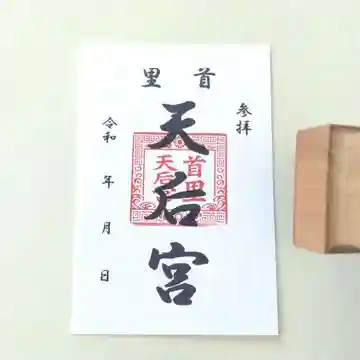 里 首
参拝
天后宮
首里
天后宮
令和 年 月 日